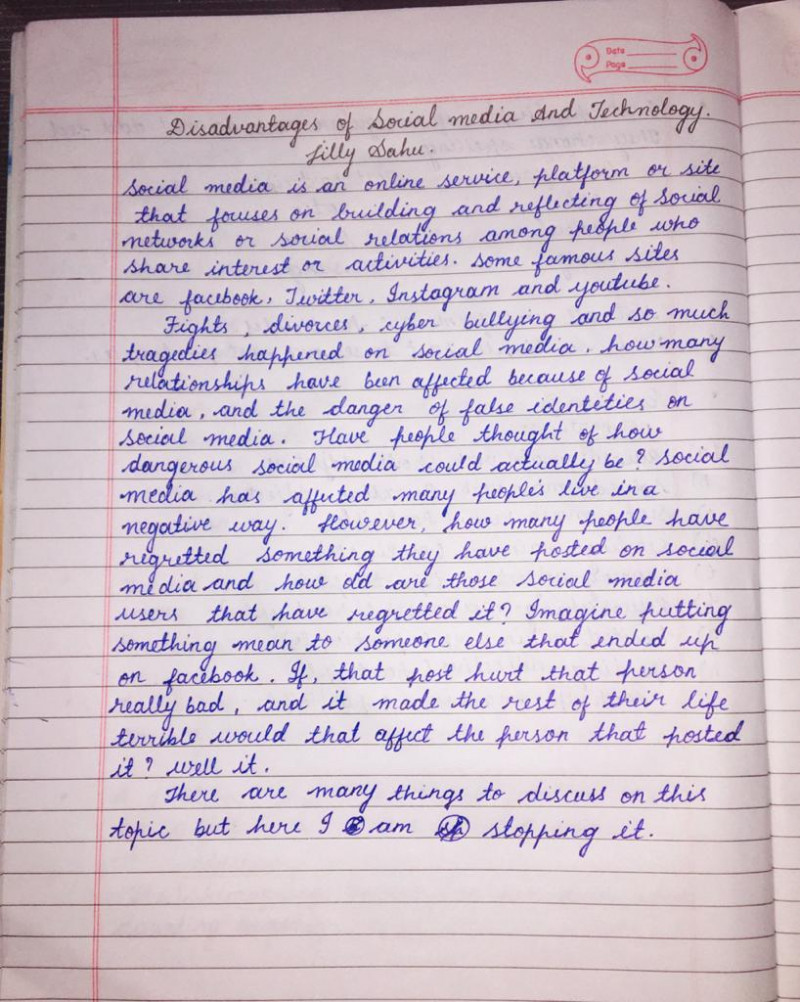 Date
Page
Disadvantages of Social media And Technology.
Lilly Sahu.
Social media is an online service, platform or site
that focuses on building and reflecting of Social
networks or social relations among people who
share interest or activities. Some famous sites
are facebook, Twitter, Instagram and youtube.
Fights, divorces, cyber bullying and so much
tragedies happened on social media. how many
relationships have been affected because of social
media, and the danger of false identeties on
social media. Have people thought of how
dangerous social media could actually be? Social
media has affected many people's live in a
negative way. However, how many people have
regretted something they have posted on social
media and how old are those social media
users that have regretted it? Imagine putting
something mean to someone else that ended up
on facebook. If, that post hurt that person
really bad, and it made the rest of their life
terrible would that affect the person that posted
it? well it.
There are many things to discuss on this
topic but here I am stopping it.